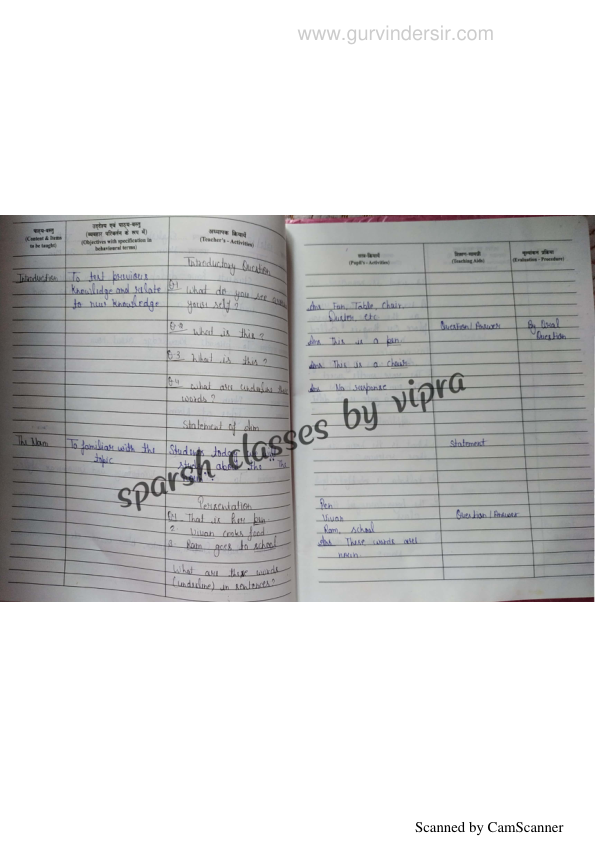 www.gurvindersir.com
पाठ्य-वस्तु
(Content & Items
to be taught)
उद्देश्य एवं पाठ्य-वस्तु
(व्यवहार परिवर्तन के रूप में)
(Objectives with specification in
behavioural terms)
अध्यापक क्रियायें
(Teacher's - Activities)
Introductory Question
Introduction
To test previous
knowledge and relate
to new knowledge
Q1 What do you see
your self?
Q2 What is this?
Q3 What is this?
Q4 What are underline
words?
Statement of Aim
The Noun
To familiar with the
topic
Students today
study about the "The
Presentation
Q1 That is her pen
2. Vivan cooks food
3. Ram goes to school
What are these words
(underline) in sentences?
छात्र-क्रियायें
(Pupil's - Activities)
शिक्षण-सामग्री
(Teaching Aids)
मूल्यांकन प्रक्रिया
(Evaluation - Procedure)
Ans Fan, Table, Chair,
Duster etc
Ans This is a pen
Question/Answer
By Oral
Question
Ans This is a chair
Ans No response
Statement
Pen
Vivan
Ram, school
Question/Answer
Ans These words are
noun.
sparsh classes by vipra
Scanned by CamScanner